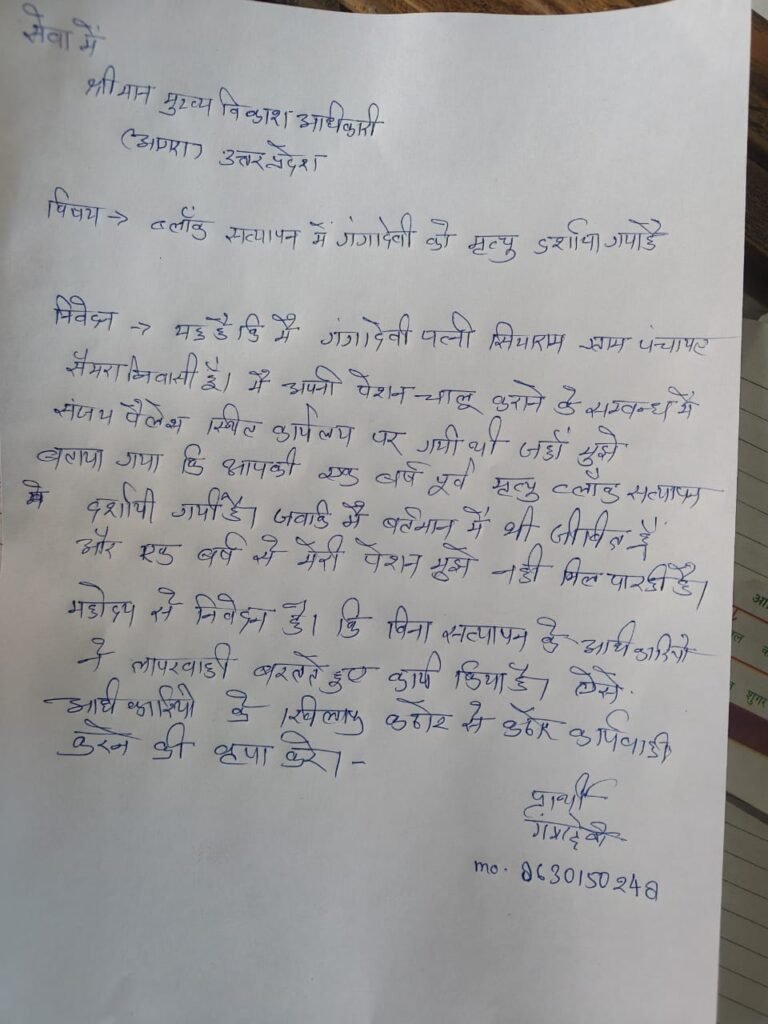 सेवा में
श्रीमान मुख्य विकाश अधिकारी
(आगरा) उत्तरप्रदेश
विषय → ब्लॉक सत्यापन में गंगादेवी को मृत्यु दर्शाया गया है
निवेदन → यह है कि मैं गंगादेवी पत्नी सियाराम ग्राम पंचायत
सैमरा निवासी हूँ। मैं अपनी पेंशन चालू कराने के सम्बन्ध में
संजय पैलेश स्थित कार्यलय पर गयी थी जहाँ मुझे
बताया गया कि आपकी एक वर्ष पूर्व मृत्यु ब्लॉक सत्यापन
में दर्शायी गयी है। जबकि मैं बर्तमान में भी जीवित हूँ
और एक वर्ष से मेरी पेंशन मुझे नही मिल पा रही है।
महोदय से निवेदन है। कि बिना सत्यापन के अधिकारियो
ने लापरवाही बरतते हुए कार्य किया है। ऐसे
अधिकारियो के खिलाफ कठोर से कठोर कार्यवाही
करने की कृपा करे।-
प्रार्थी
गंगादेवी
mo. 8630150248
शुगर